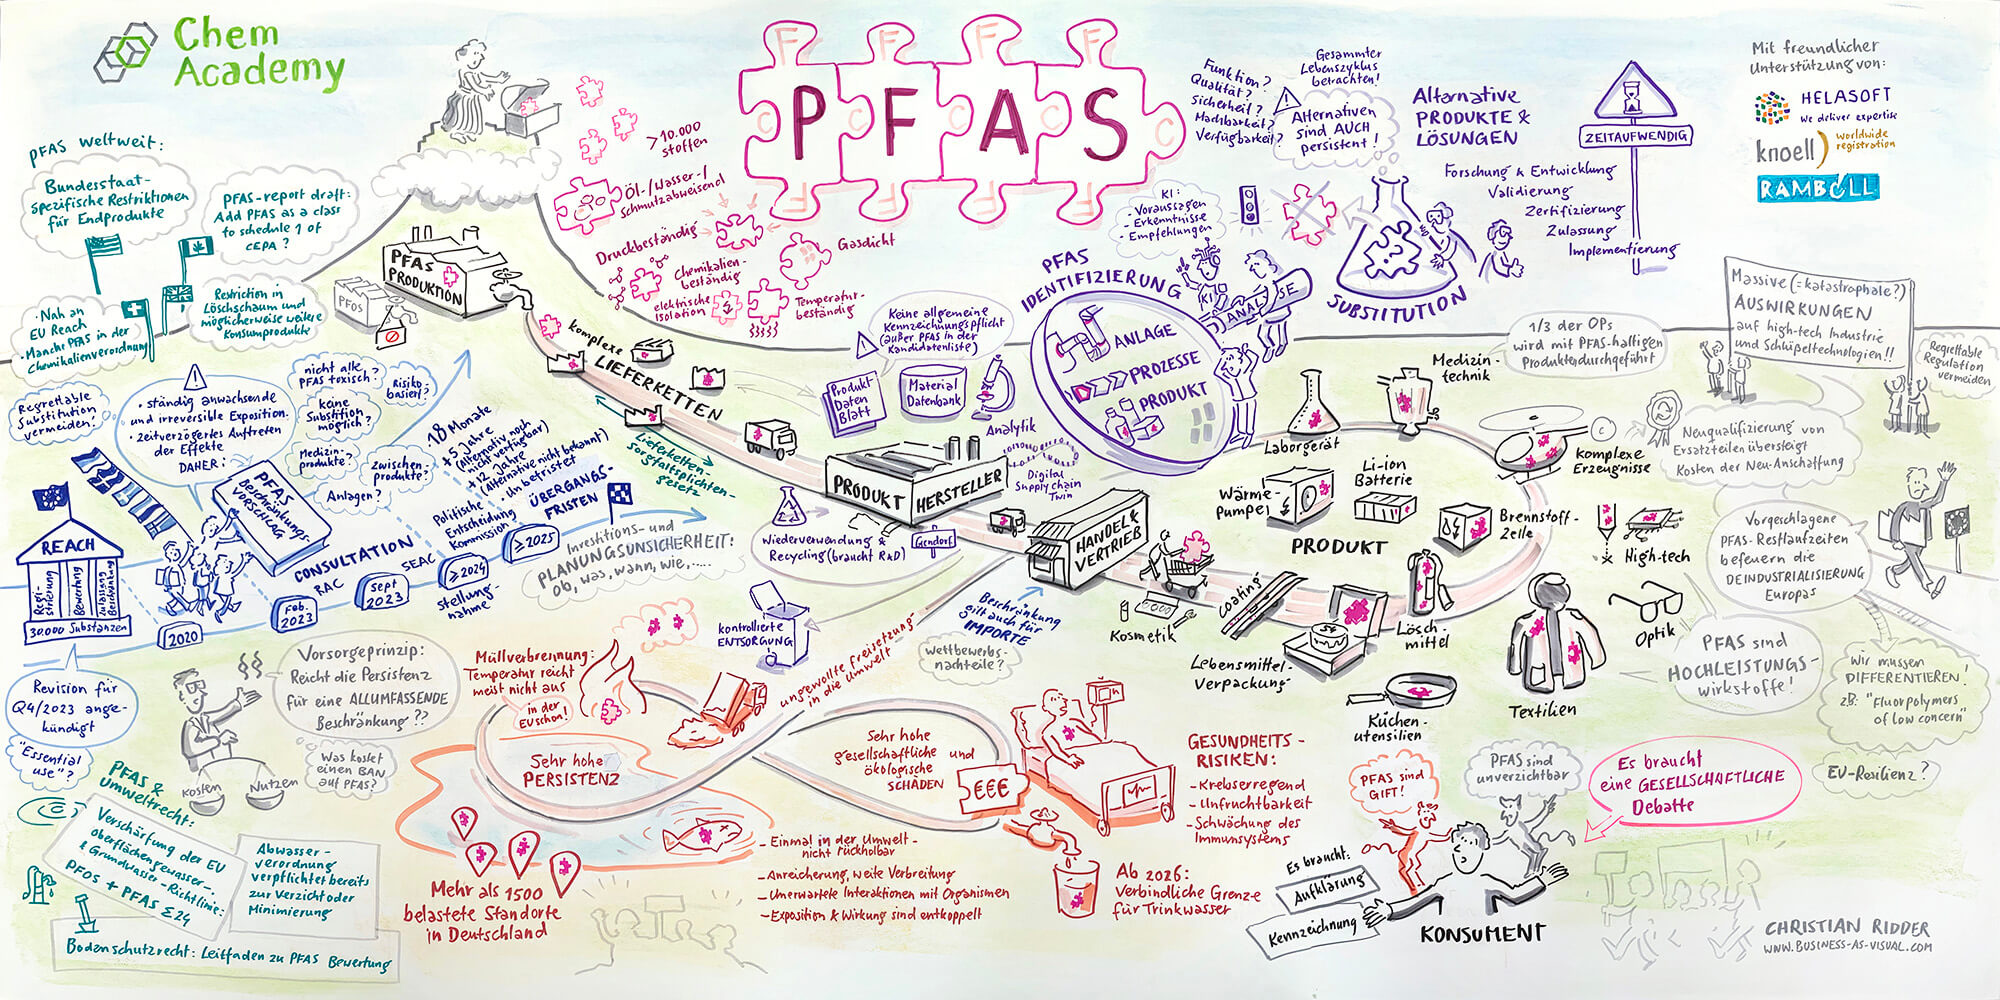 Chem
Academy
F F F F
C P C F C A C S C
F F F F
PFAS weltweit:
Bundesstaat-
spezifische Restriktionen
für Endprodukte
PFAS-report draft:
Add PFAS as a class
to schedule 1 of
CEPA?
• Nah an
EU Reach
• Manche PFAS in der
Chemikalienverordnung
Restriction in
Löschschaum und
möglicherweise weitere
Konsumprodukte
PFAS
PRODUKTION
PFOS
> 10.000
stoffen
Öl-/Wasser-/
Schmutzabweisend
Druckbeständig
Gasdicht
Chemikalien-
beständig
elektrische
Isolation
Temperatur-
beständig
Funktion?
Qualität?
Sicherheit?
Machbarkeit?
Verfügbarkeit?
Gesammter
Lebenszyklus
betrachten!
Alternativen
sind AUCH
persistent!
Alternative
PRODUKTE &
LÖSUNGEN
ZEITAUFWENDIG
Forschung & Entwicklung
Validierung
Zertifizierung
Zulassung
Implementierung
Mit freundlicher
Unterstützung von:
HELASOFT
We deliver expertise
knoell
worldwide
registration
RAMBOLL
KI:
- Voraussagen
- Erkenntnisse
- Empfehlungen
KI
ANALYSE
SUBSTITUTION
PFAS
IDENTIFIZIERUNG
ANLAGE
PROZESSE
PRODUKT
Keine allgemeine
Kennzeichnungspflicht
(außer PFAS in der
Kandidatenliste)
Produkt
Daten
Blatt
Material
Datenbank
Analytik
Digital
Supply chain
Twin
komplexe
LIEFERKETTEN
Lieferketten-
sorgfaltspflichten-
gesetz
PRODUKT HERSTELLER
Wiederverwendung &
Recycling (braucht R&D)
Gendorf
HANDEL &
VERTRIEB
Beschränkung
gilt auch für
IMPORTE
Wettbewerbs-
nachteile?
1/3 der OPs
wird mit PFAS-haltigen
Produkten durchgeführt
Massive (=katastrophale?)
AUSWIRKUNGEN
auf high-tech Industrie
und Schlüpeltechnologien!!
Regrettable
Regulation
vermeiden
Medizin-
technik
Laborgerät
Komplexe
Erzeugnisse
Wärme-
pumpe
Li-ion
Batterie
Brennstoff-
Zelle
PRODUKT
High-tech
Optik
Textilien
Lösch-
mittel
Küchen-
utensilien
Lebensmittel-
Verpackung
coating
Kosmetik
Neuqualifizierung von
Ersatzteilen übersteigt
Kosten der Neu-Anschaffung
Vorgeschlagene
PFAS-Restlaufzeiten
befeuern die
DEINDUSTRIALISIERUNG
Europas
PFAS sind
HOCHLEISTUNGS-
wirkstoffe!
Wir müssen
DIFFERENTIEREN!
z.B: "Fluorpolymers
of low concern"
EU-Resilienz?
Regrettable
Substitution
vermeiden!
• ständig anwachsende
und irreversible Exposition.
• zeitverzögertes Auftreten
der Effekte
DAHER:
nicht alle
PFAS toxisch?
Risiko
basiert?
keine
Substition
möglich?
Medizin-
produkte?
Zwischen-
produkte?
Anlagen?
PFAS
Beschränkungs-
VORSCHLAG
REACH
Regi-
strierung
Bewertung
Zulassung
Beschränkung
30.000 Substanzen
2020
Feb.
2023
CONSULTATION
RAC
Sept
2023
SEAC
≥2024
Stellung-
nahme
≥2025
Politische
Entscheidung
Kommission
18 Monate
+ 5 Jahre
(Alternativ noch
nicht verfügbar)
+ 12 Jahre
(Alternative nicht bekannt)
• Unbefristet
ÜBERGANGS-
FRISTEN
Investitions- und
PLANUNGSUNSICHERHEIT:
ob, was, wann, wie, .....
Revision für
Q4/2023 ange-
kündigt
"Essential
use"?
Vorsorgeprinzip:
Reicht die Persistenz
für eine ALLUMFASSENDE
Beschränkung??
Was kostet
einen BAN
auf PFAS?
Kosten
Nutzen
PFAS &
Umweltrecht:
Verschärfung der EU
oberflächengewässer-
& Grundwasser-Richtlinie:
PFOS + PFAS Σ24
Abwasser-
verordnung
verpflichtet bereits
zur Verzicht oder
Minimierung
Bodenschutzrecht: Leitfaden zu PFAS Bewertung
Müllverbrennung:
Temperatur reicht
meist nicht aus
in der
EU schon!
kontrollierte
ENTSORGUNG
ungewollte Freisetzung
in die Umwelt
Sehr hohe
PERSISTENZ
Sehr hohe
gesellschaftliche und
ökologische
SCHÄDEN
€€€
Mehr als 1500
belastete Standorte
in Deutschland
- Einmal in der Umwelt -
nicht rückholbar
- Anreicherung, weite Verbreitung
- Unerwartete Interaktionen mit Organismen
- Exposition & Wirkung sind entkoppelt
GESUNDHEITS-
RISIKEN:
- Krebserregend
- Unfruchtbarkeit
- Schwächung des
Immunsystems
Ab 2026:
Verbindliche Grenze
für Trinkwasser
PFAS sind
GIFT!
PFAS sind
unverzichtbar
Es braucht:
Aufklärung
Kennzeichnung
KONSUMENT
Es braucht
eine GESELLSCHAFTLICHE
Debatte
CHRISTIAN RIDDER
WWW.BUSINESS-AS-VISUAL.COM